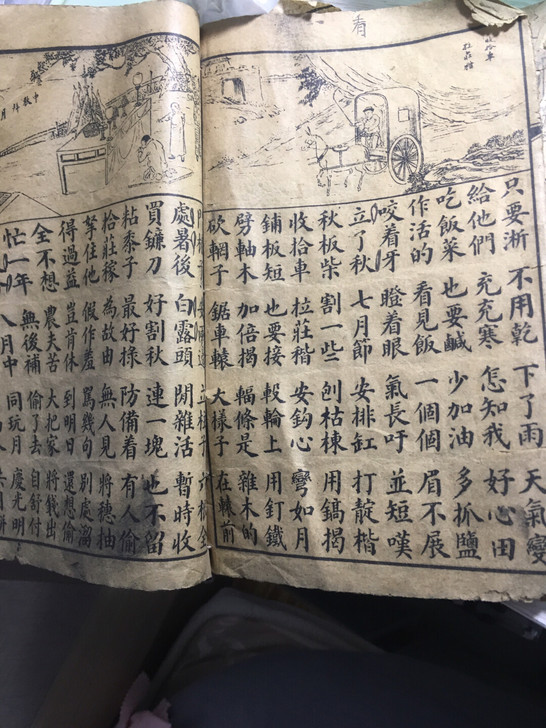 看
收拾車
拉莊稭
只要淅 不用乾 下了雨 天氣變
給他們 充充寒 怎知我 好心田
吃飯菜 也要鹹 少加油 多抓鹽
作活的 看見飯 一個個 眉不展
咬着牙 瞪着眼 氣長吁 並短嘆
立了秋 七月節 安排缸 打靛楷
秋板柴 割一些 刨枯棟 用鎬揭
收拾車 拉莊楷 安鈎心 彎如月
鋪板短 也要接 轂輪上 用釘鐵
劈軸木 加倍揭 輻條是 雜木的
砍輞子 鋸車轅 大樣子 在轅前
中秋拜月
處暑後 白露頭 閑雜活 暫時收
買鐮刀 好割秋 連一塊 也不留
粘黍子 最好捋 防備着 有人偷
拾莊稼 為故由 無人見 將穗抽
拏住他 假作羞 罵幾句 別處溜
得過益 豈肯休 到明日 還想偷
全不想 農夫苦 大把家 將錢出
忙一年 無後補 偷了去 自舒付
八月中 同玩月 慶光明